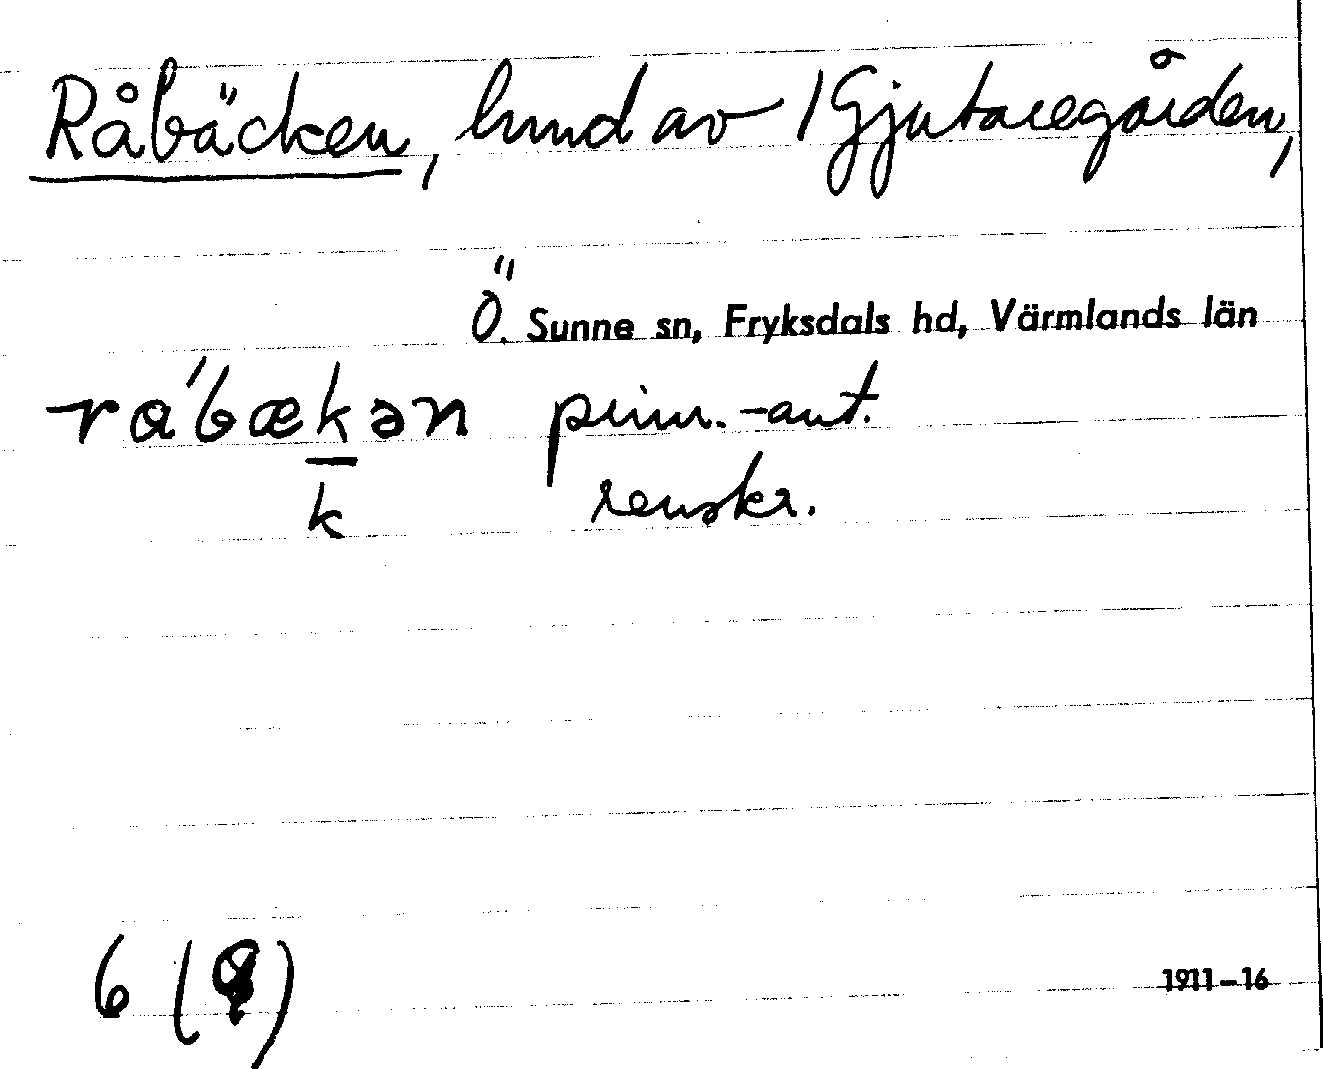 Råbäcken, hmd av 1 Gjutaregården,
Ö. Sunne sn, Fryksdals hd, Värmlands län
rɑ́bækən prim.-ant.
k renskr.
6 (9)
1911–16